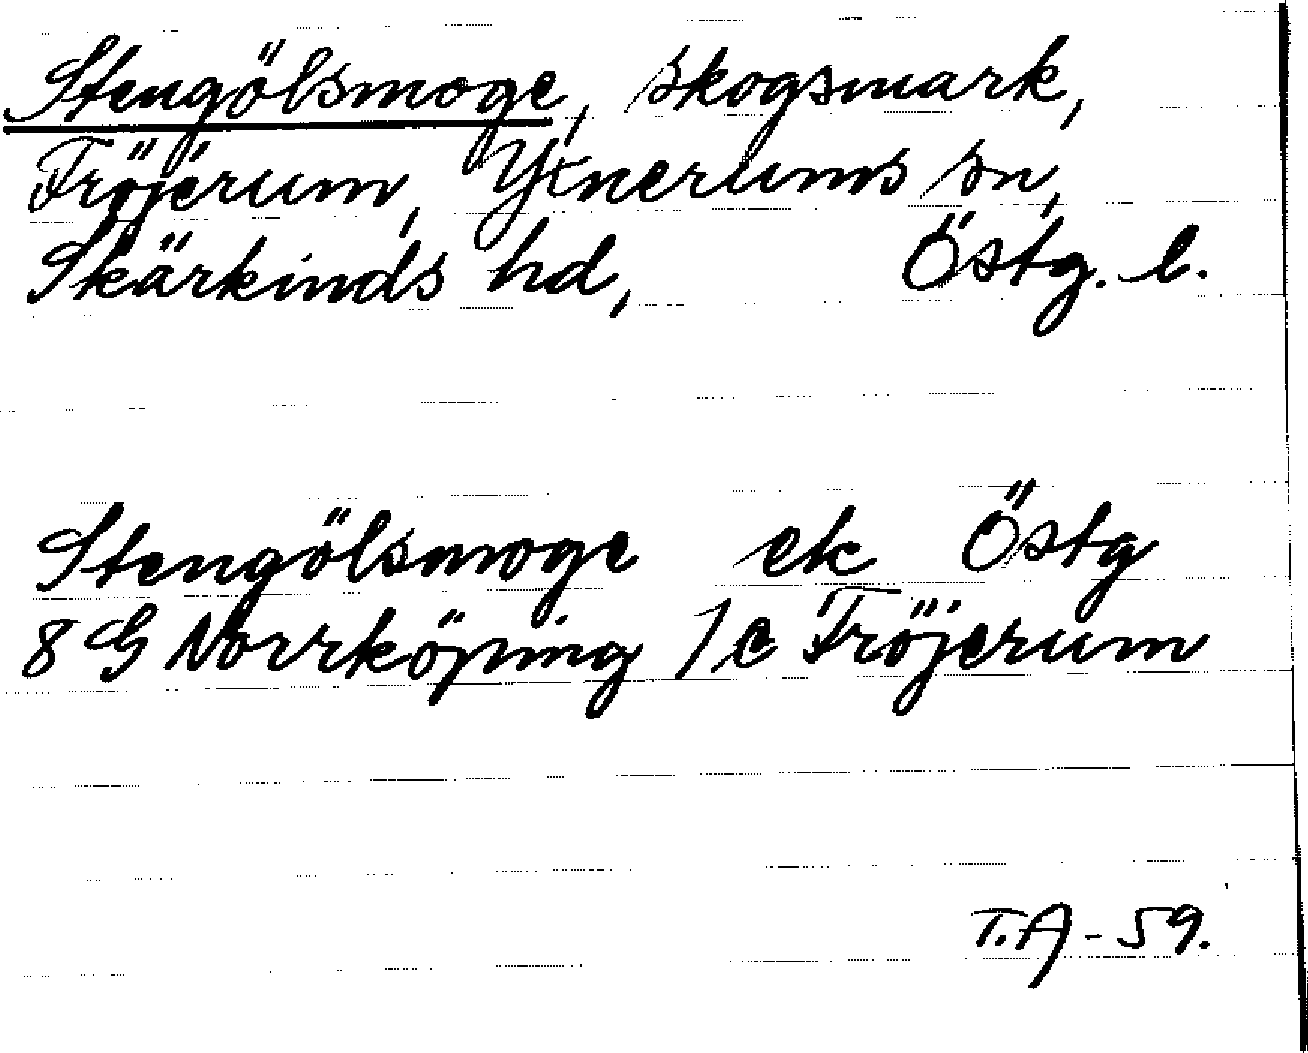 Stengölsmoge, skogsmark,
Fröjerum, Yxnerums sn,
Skärkinds hd, Östg. l.
Stengölsmoge ek Östg
8 G Norrköping 1 c Fröjerum
T.A - 59.